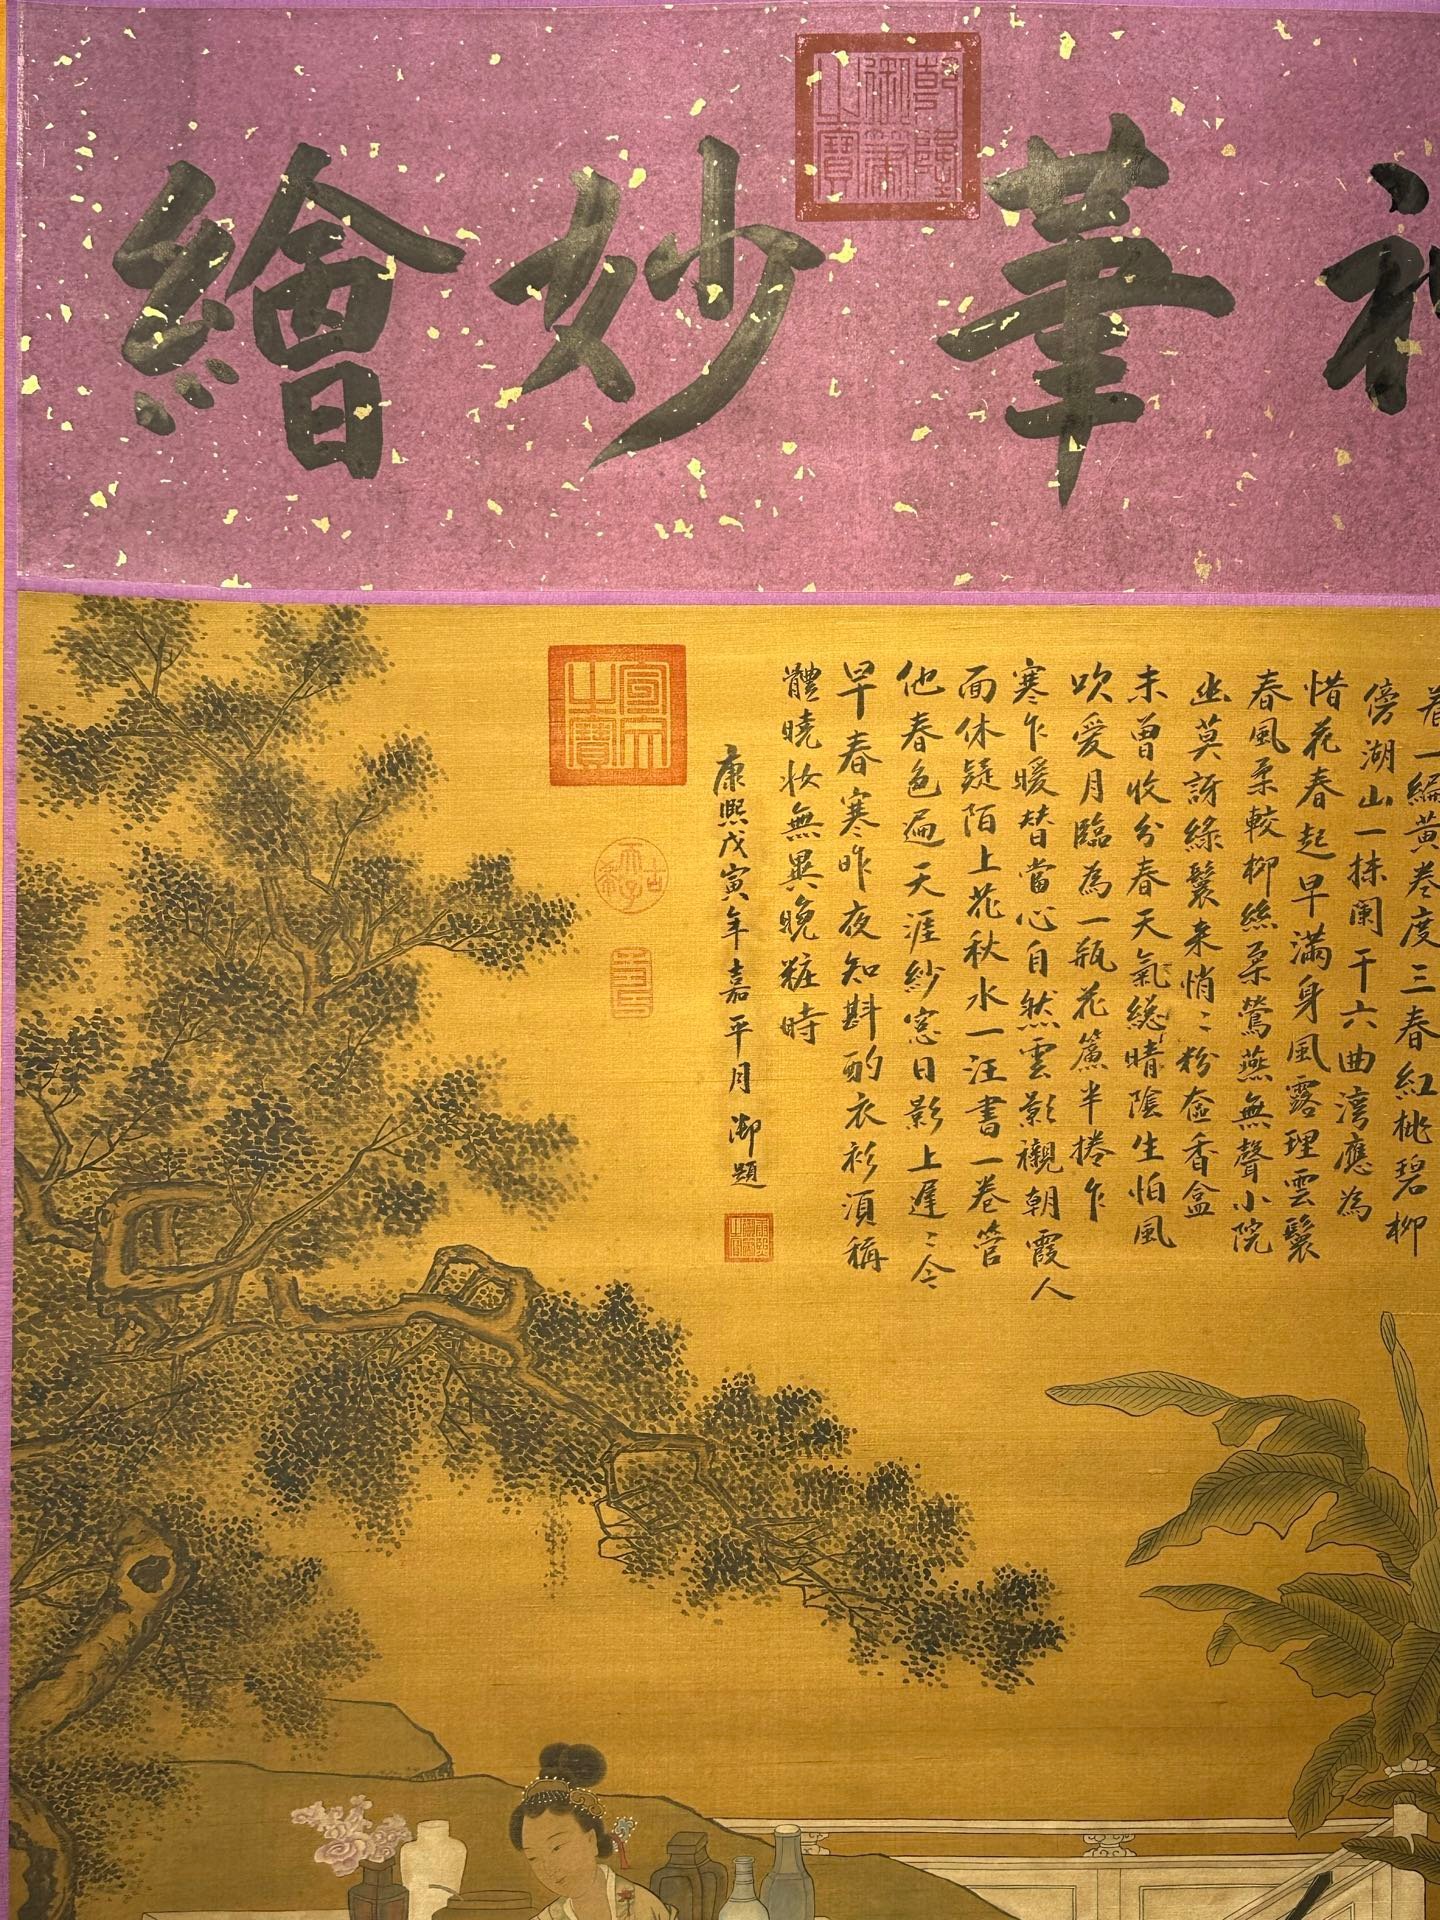 神筆妙繪
乾隆御筆之寶
卷一編黃卷度三春紅桃碧柳
傍湖山一抹闌干六曲湾應為
惜花春起早滿身風露理雲鬟
春風柔較柳絲柔鶯燕無聲小院
幽莫訝綠鬟来悄〻粉奩香盒
未曾收分春天氣總晴陰生怕風
吹愛月臨為一瓶花簾半捲乍
寒乍暖替當心自然雲影襯朝霞人
面休疑陌上花秋水一汪書一卷管
他春色遍天涯紗窓日影上遲〻今
早春寒昨夜知斟酌衣衫須稱
體曉妝無異晚粧時
康熙戊寅年嘉平月御題
宣統之寶
古稀天子